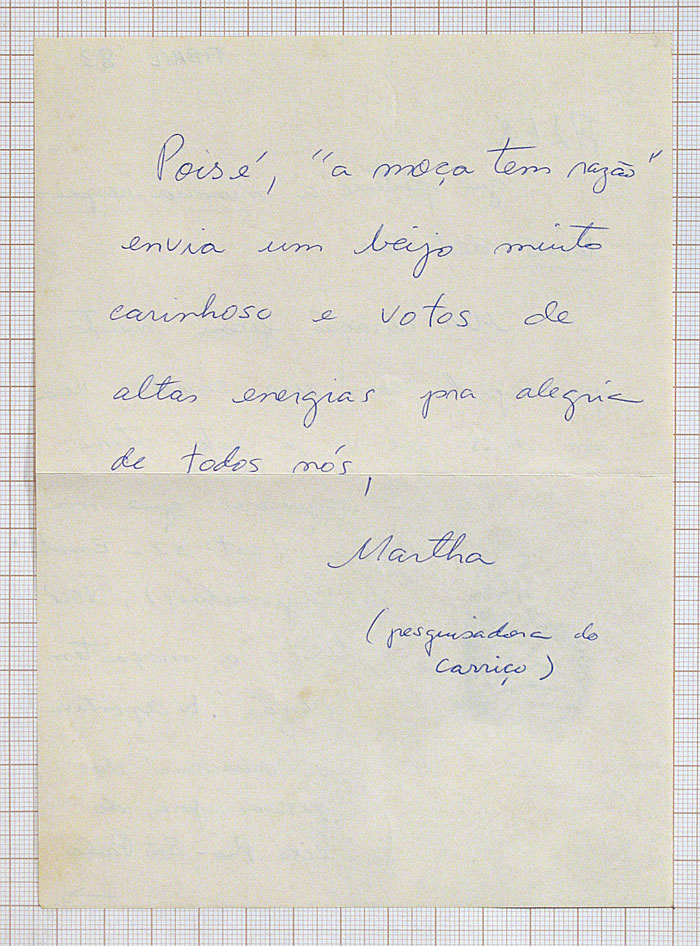 Pois é, "a moça tem razão"
envia um beijo muito
carinhoso e votos de
altas energias pra alegria
de todos nós,
Martha
(pesquisadora do
carriço)